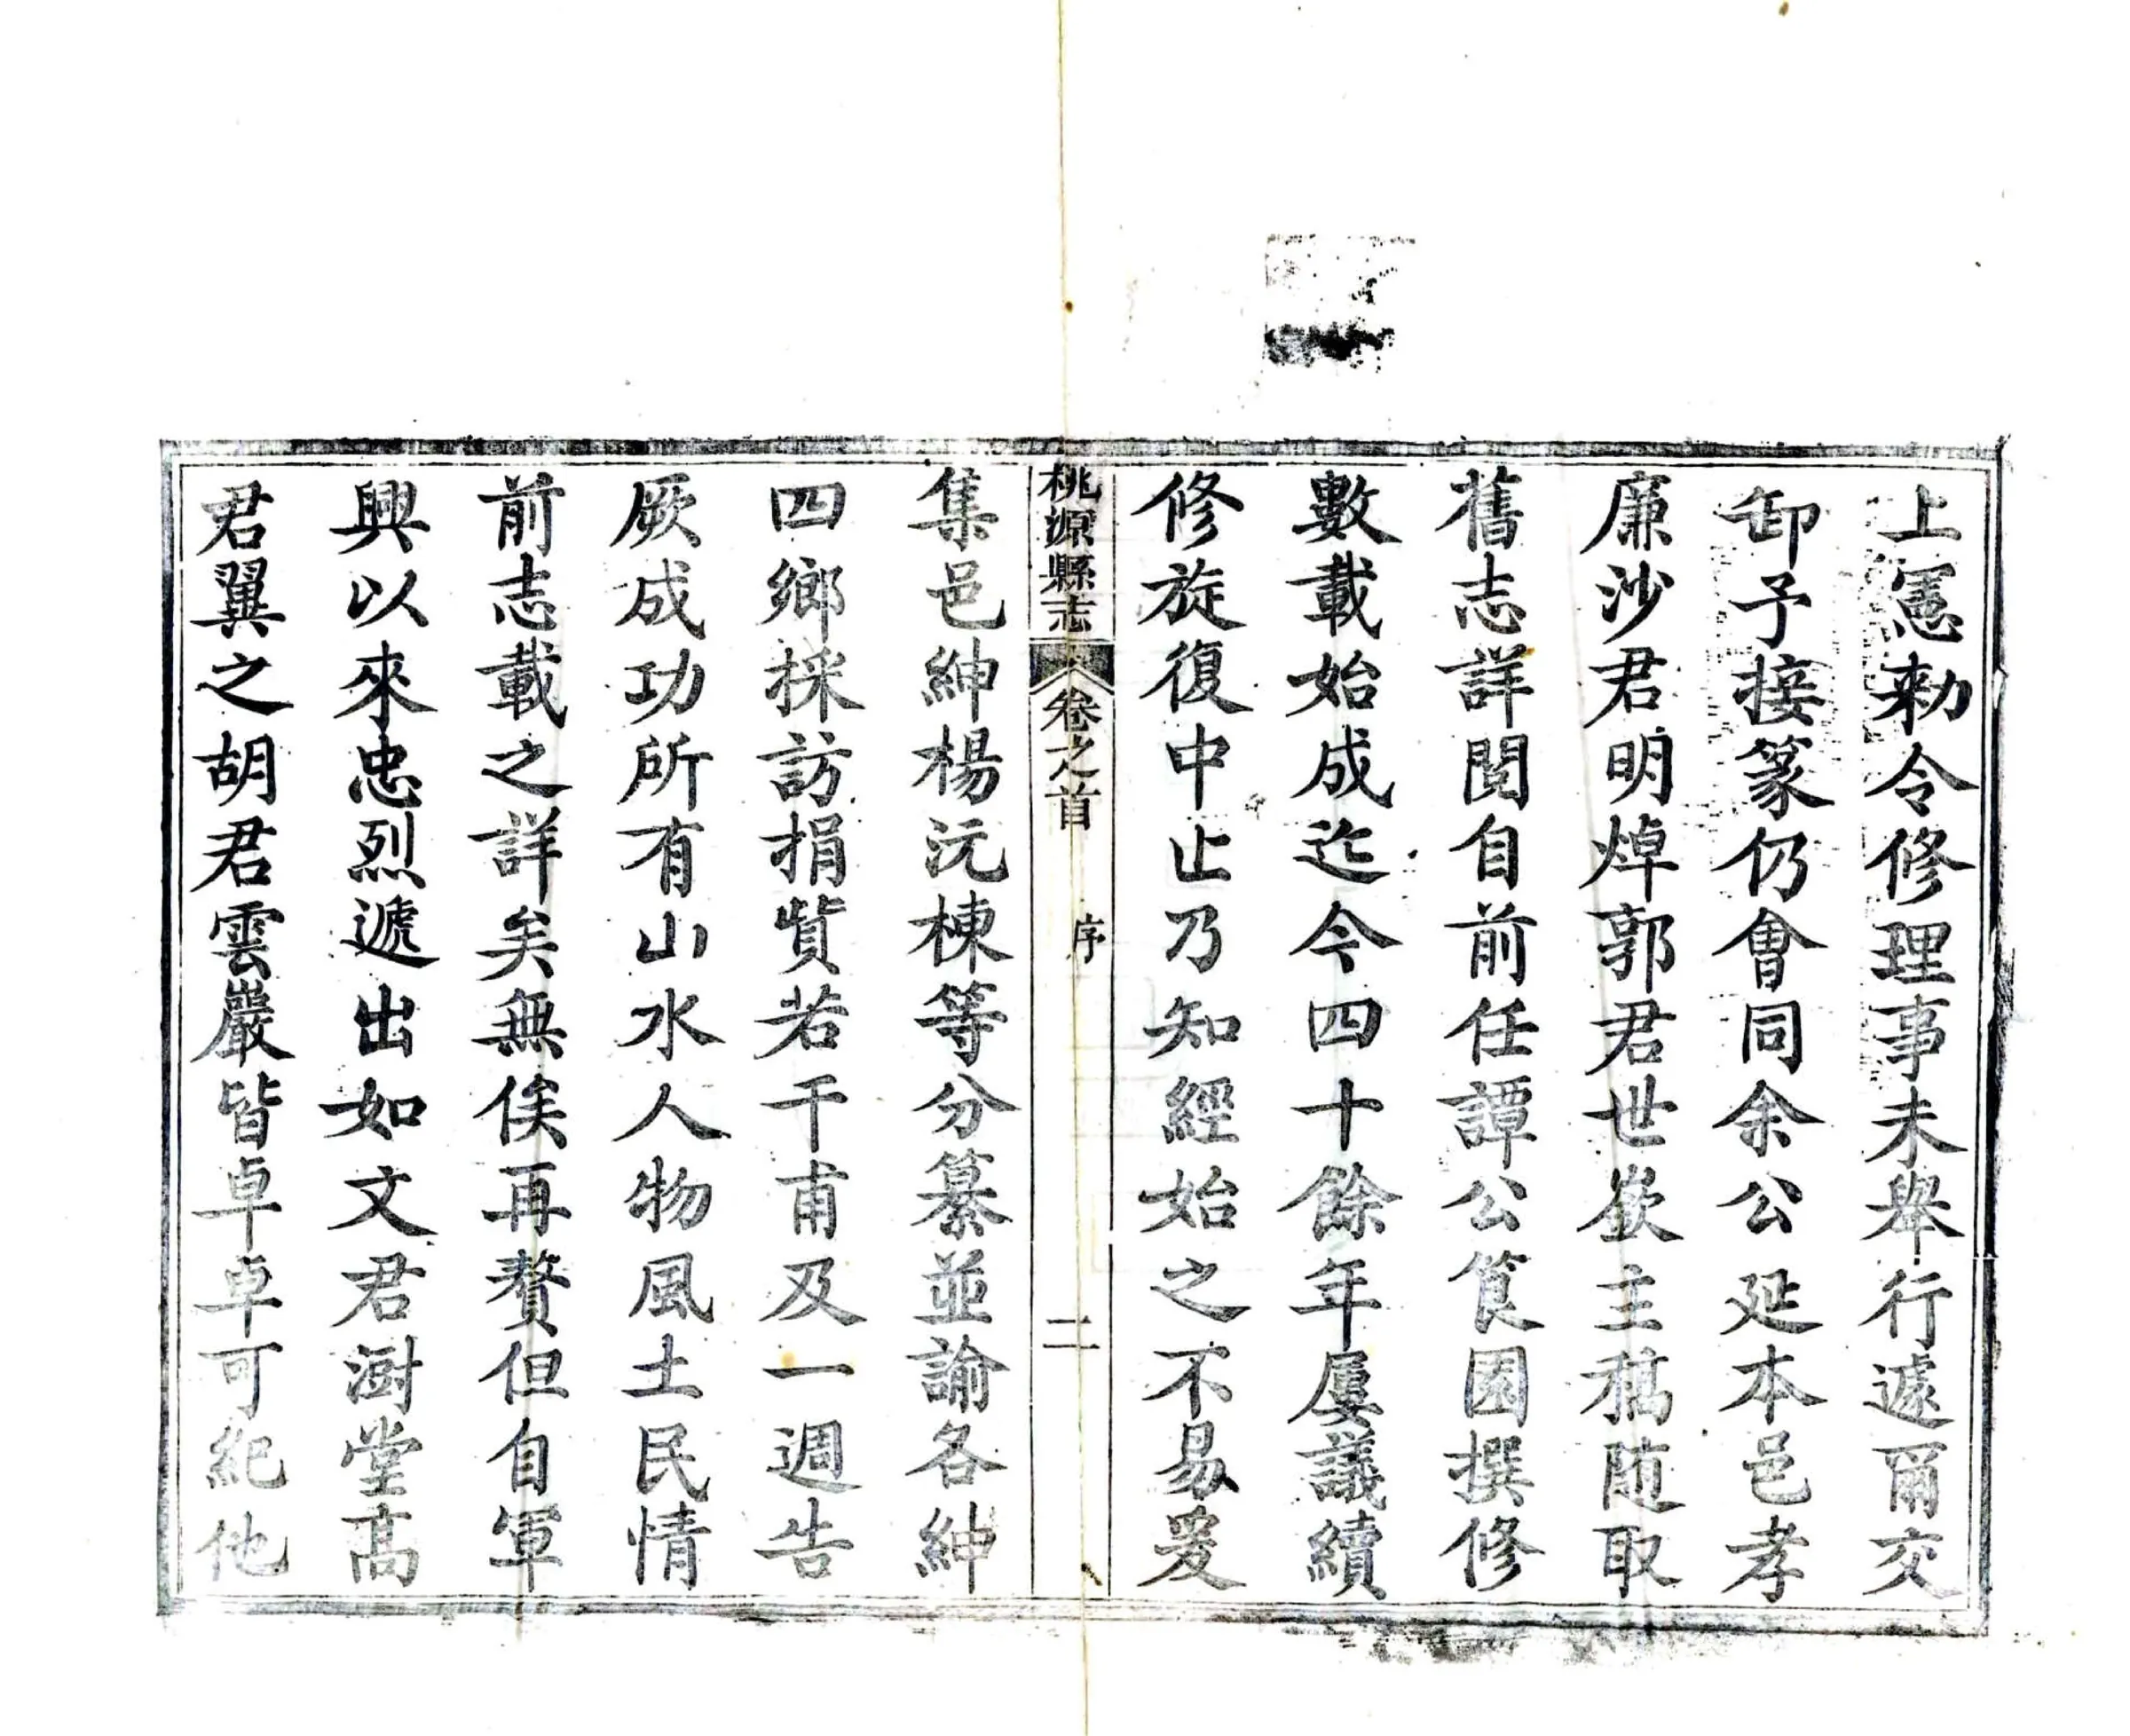 上憲勅令修理事未舉行遽爾交
卸予接篆仍會同余公延本邑孝
廉沙君明焯郭君世嶔主稿随取
舊志詳閱自前任譚公筤園撰修
數載始成迄今四十餘年屢議續
修旋復中止乃知經始之不易爰
桃源縣志 卷之首 序 二
集邑紳楊沅棟等分纂並諭各紳
四鄉採訪捐貲若干甫及一週告
厥成功所有山水人物風土民情
前志載之詳矣無俟再贅但自軍
興以來忠烈遞出如文君澍堂高
君翼之胡君雲巖皆卓卓可紀他